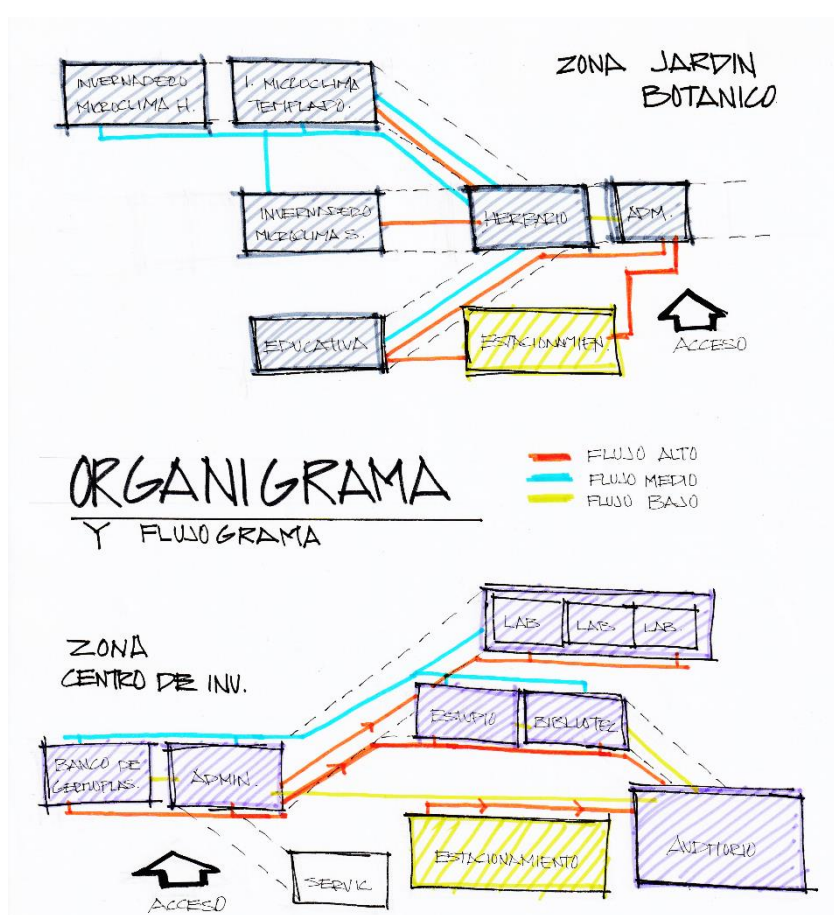 ZONA JARDIN
BOTANICO
INVERNADERO
MICROCLIMA H.
I. MICROCLIMA
TEMPLADO.
INVERNADERO
MICROCLIMA S.
HERBARIO
ADM.
EDUCATIVA
ESTACIONAMIEN.
ACCESO
ORGANIGRAMA
Y FLUJOGRAMA
FLUJO ALTO
FLUJO MEDIO
FLUJO BAJO
ZONA
CENTRO DE INV.
LAB
LAB
LAB.
ESTUDIO
BIBLIOTEC
BANCO DE
GERMOPLAS.
ADMIN.
ESTACIONAMIENTO
AUDITORIO
SERVIC
ACCESO